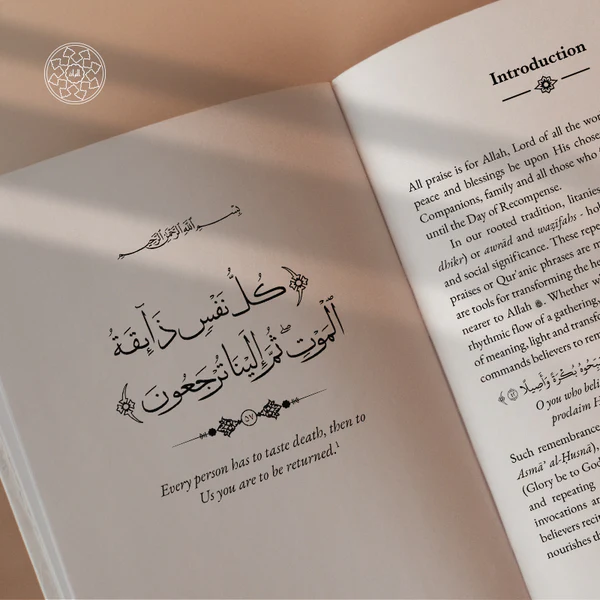 بسم الله الرحمن الرحيم
كُلُّ نَفْسٍ ذَآئِقَةُ
ٱلْمَوْتِ ۖ ثُمَّ إِلَيْنَا تُرْجَعُونَ
٥٧
Every person has to taste death, then to
Us you are to be returned.¹
Introduction
All praise is for Allah, Lord of all the
peace and blessings be upon His
Companions, family and all those who
until the Day of Recompense.
In our rooted tradition, litanies
dhikr) or awrād and waẓīfahs -
and social significance. These
praises or Qur'anic phrases are
are tools for transforming the
nearer to Allah ﷻ. Whether
rhythmic flow of a gathering,
of meaning, light and
commands believers to
بُكْرَةً وَأَصِيلًا
O you who
proclaim
Such remembrance
Asmā' al-Ḥusnā),
(Glory be to
and repeating
invocations
believers
nourishes